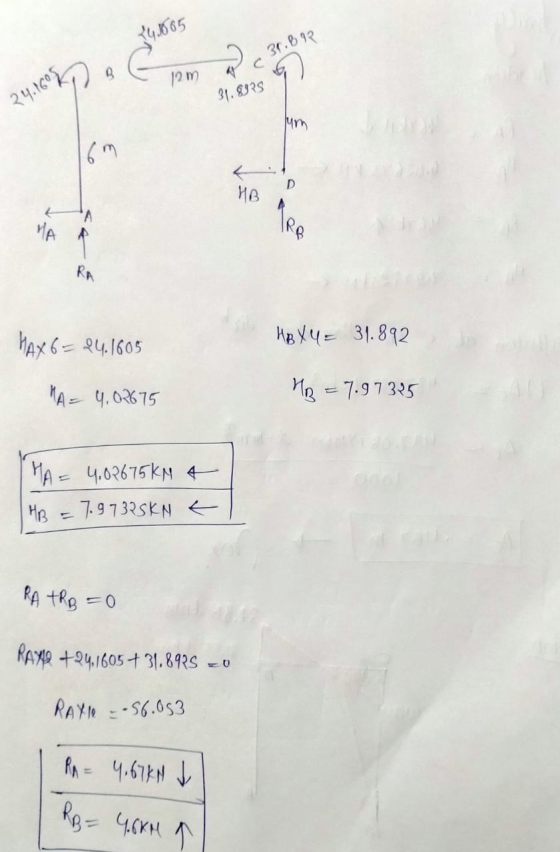 24.1605
31.892
24.1605 B 12m C
31.8925
6m 4m
HB D
HA A RB
RA
HA×6 = 24.1605 HB×4 = 31.892
HA = 4.02675 HB = 7.97325
HA = 4.02675KN ←
HB = 7.97325KN ←
RA + RB = 0
RA×12 + 24.1605 + 31.8925 = 0
RA×12 = -56.053
RA = 4.67KN ↓
RB = 4.6KN ↑